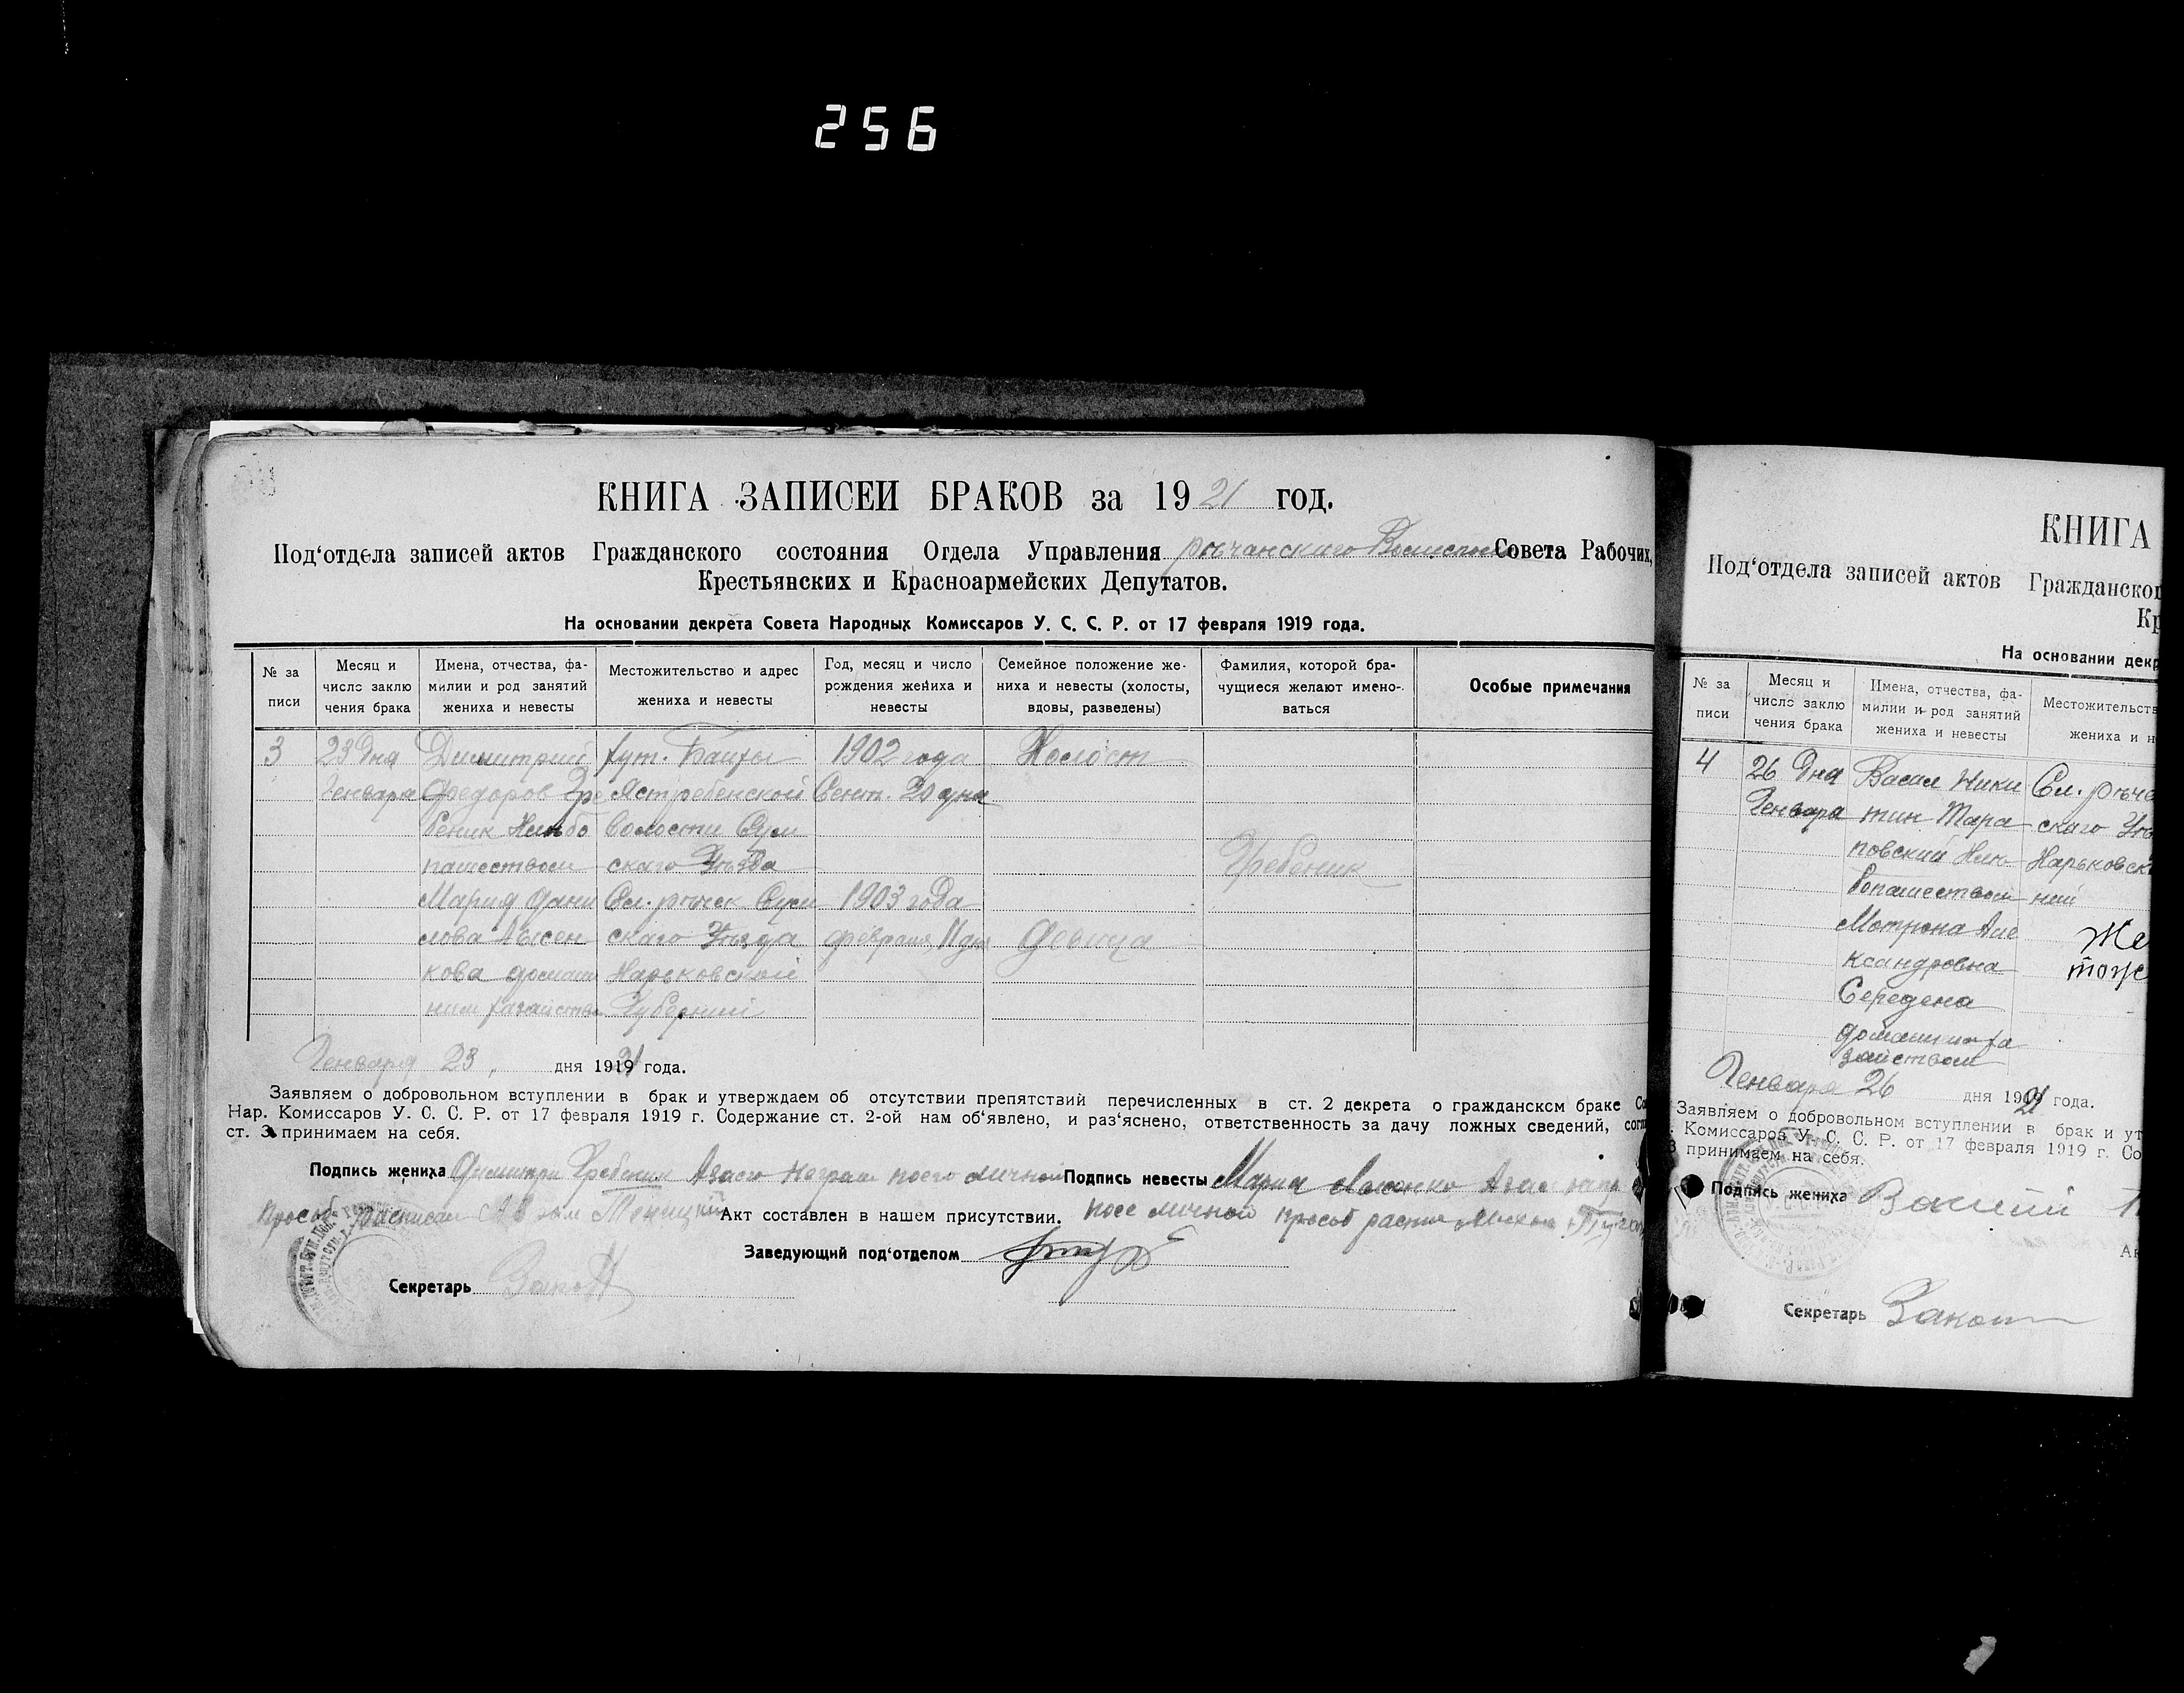 256
КНИГА ЗАПИСЕЙ БРАКОВ за 1921 год.
Под‘отдела записей актов Гражданского состояния Отдела Управления Совета Рабочих,
Крестьянских и Красноармейских Депутатов.
На основании декрета Совета Народных Комиссаров У. С. С. Р. от 17 февраля 1919 года.
№ за писи
Месяц и число заклю чения брака
Имена, отчества, фа- милии и род занятий жениха и невесты
Местожительство и адрес жениха и невесты
Год, месяц и число рождения жениха и невесты
Семейное положение же- ниха и невесты (холосты, вдовы, разведены)
Фамилия, которой бра- чущиеся желают имено- ваться
Особые примечания
3 23 дня Димитрий хут. 1902 года Холост
Генваря Федоров Гре Ястребенской Сент. 20 дня
беник Хлебо волости Сум
пашеством скаго Уезда Гребеник
Мария Дани Сл. Сум 1903 года
лова Лысен скаго Уезда февраля 11 дня Девица
кова домаш Харьковской
ним хазайство Губернии
Генваря 23 дня 1921 года.
Заявляем о добровольном вступлении в брак и утверждаем об отсутствии препятствий перечисленных в ст. 2 декрета о гражданском браке Со
Нар. Комиссаров У. С. С. Р. от 17 февраля 1919 г. Содержание ст. 2-ой нам об‘явлено, и раз‘яснено, ответственность за дачу ложных сведений, согл
ст. 3 принимаем на себя.
Подпись жениха Димитри Гребеник Азаею неграм поего личной Подпись невесты Мария
прось Акт составлен в нашем присутствии. посе личной
Заведующий под‘отделом
Секретарь
КНИГА
Под‘отдела записей актов Гражданског
Кр
На основании декр
№ за писи
Месяц и число заклю чения брака
Имена, отчества, фа- милии и род занятий жениха и невесты
Местожительств жениха и н
4 26 дня Васил Ники Сл.
Генваря тин Тара скаго
повский Хле Харьковск
бопашеством ний
Мотрона Але Же
ксандровна тоже
Середена
домашним ха
зайством
Генваря 26 дня 1921 года.
Заявляем о добровольном вступлении в брак и ут
. Комиссаров У. С. С. Р. от 17 февраля 1919 г. Со
3 принимаем на себя.
Подпись жениха
Ак
Секретарь